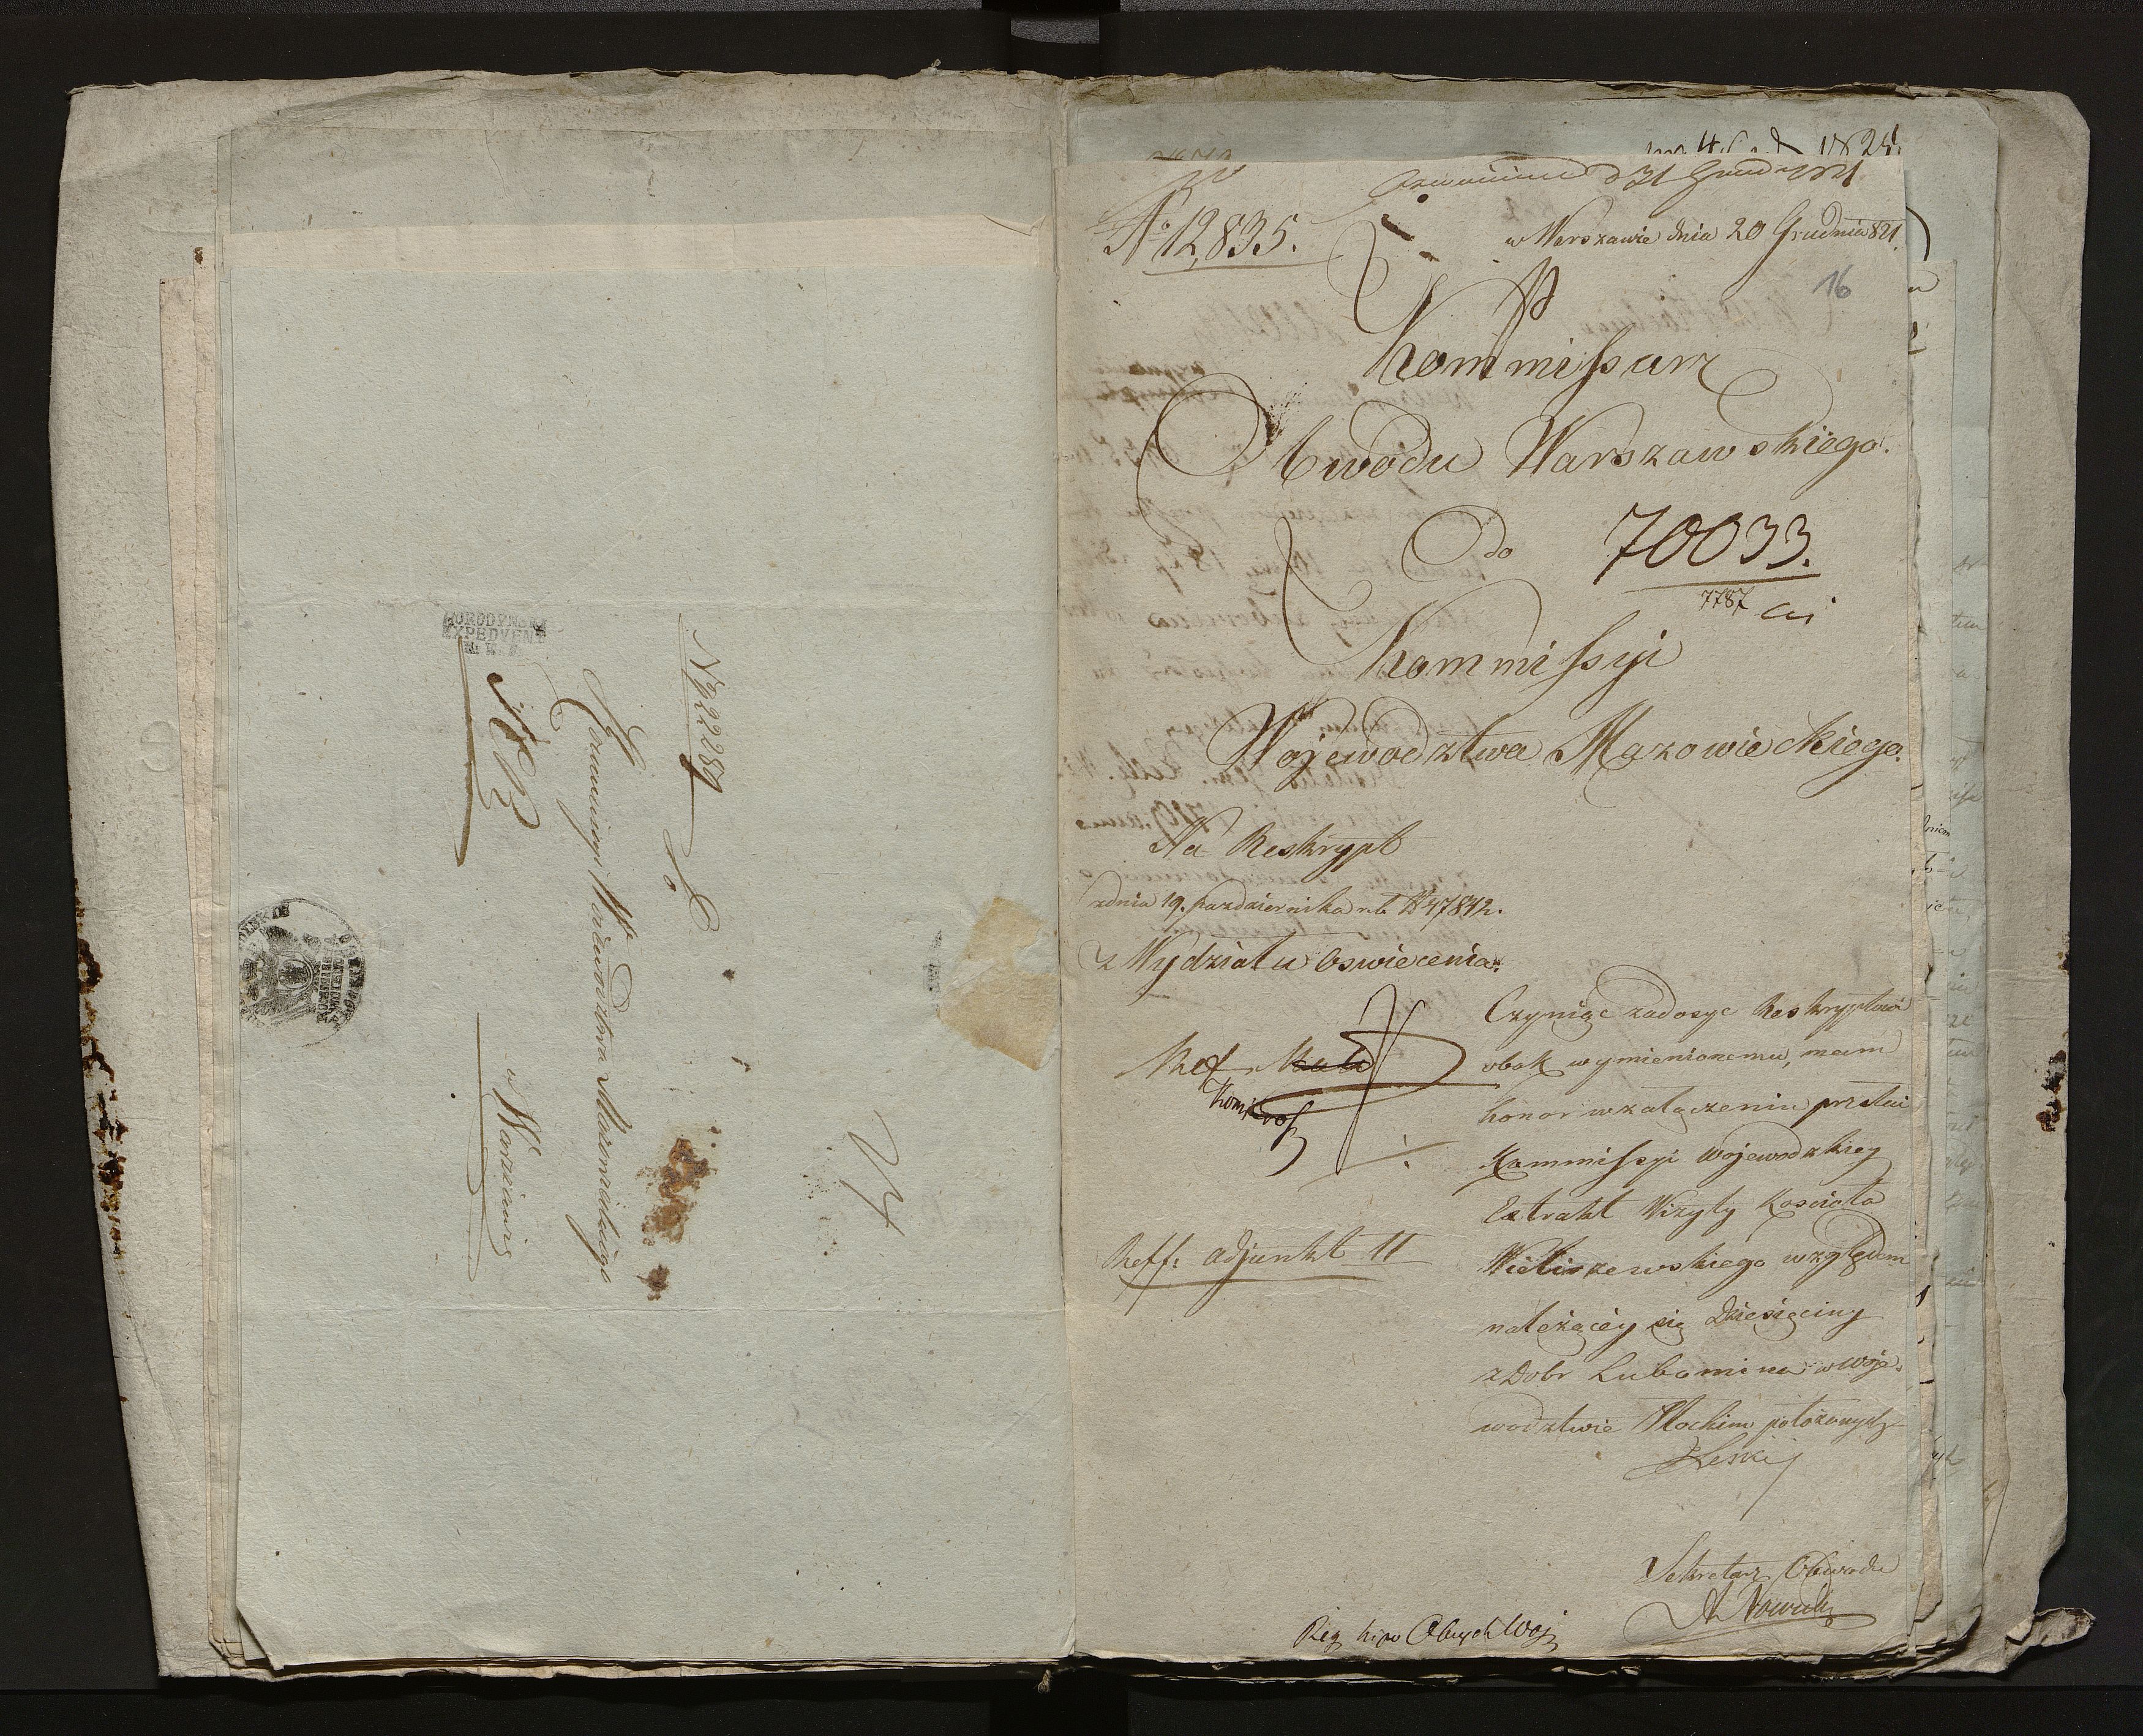 HORODYŃSKI
EXPEDYENT
K. W. M.
N 22289
Do
Kommissyi Województwa Mazowieckiego
w Warszawie
No 12,835.
d 31 Grud 1821
w Warszawie dnia 20 Grudnia 821.
16
Kommissarz
Obwodu Warszawskiego.
Do
70033.
7787
Kommissyi
Wojewodztwa Mazowieckiego.
Na Reskrypt
z dnia 19. pazdziernika r.b. N 47842.
z Wydziału Oswiecenia.
Czyniąc zadosyc Reskryptowi
obok wymienionemu, mam
honor w załączeniu przesłać
Kommissyi Wojewodzkiey
Extrakt Wizyty Koscioła
Wieliszewskiego względem
należącéy się Dziesięciny
z Dobr Lubomina w Woje-
wodztwie Płockim położonych
Reff: adjunkt II
Sekretarz Obwodu
A Nowicki